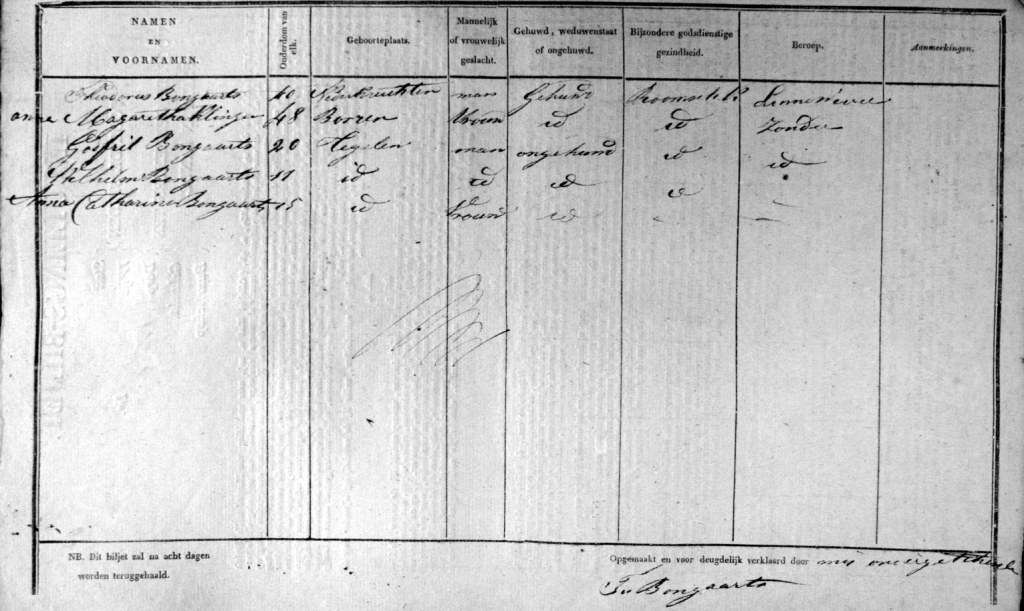 NAMEN EN VOORNAMEN. Ouderdom van elk. Geboorteplaats. Mannelijk of vrouwelijk geslacht. Gehuwd, weduwenstaat of ongehuwd. Bijzondere godsdienstige gezindheid. Beroep. Aanmerkingen.
Theodorus Bongaarts 40 man Gehuwd
anna 48 vrouw id id Zonder
Bongaarts 20 Tegelen man ongehuwd id id
Wilhelm Bongaarts 11 id id id id
Anna Catharina Bongaarts 15 id vrouw id
NB. Dit biljet zal na acht dagen
worden teruggehaald.
Opgemaakt en voor deugdelijk verklaard door mij
Bongaarts